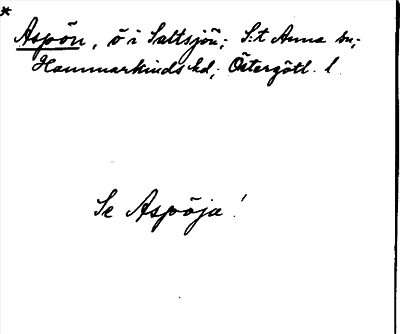 *
Aspön, ö i Saltsjön; S:t Anna sn;
Hammarkinds hd; Östergötl. l.
Se Aspöja!